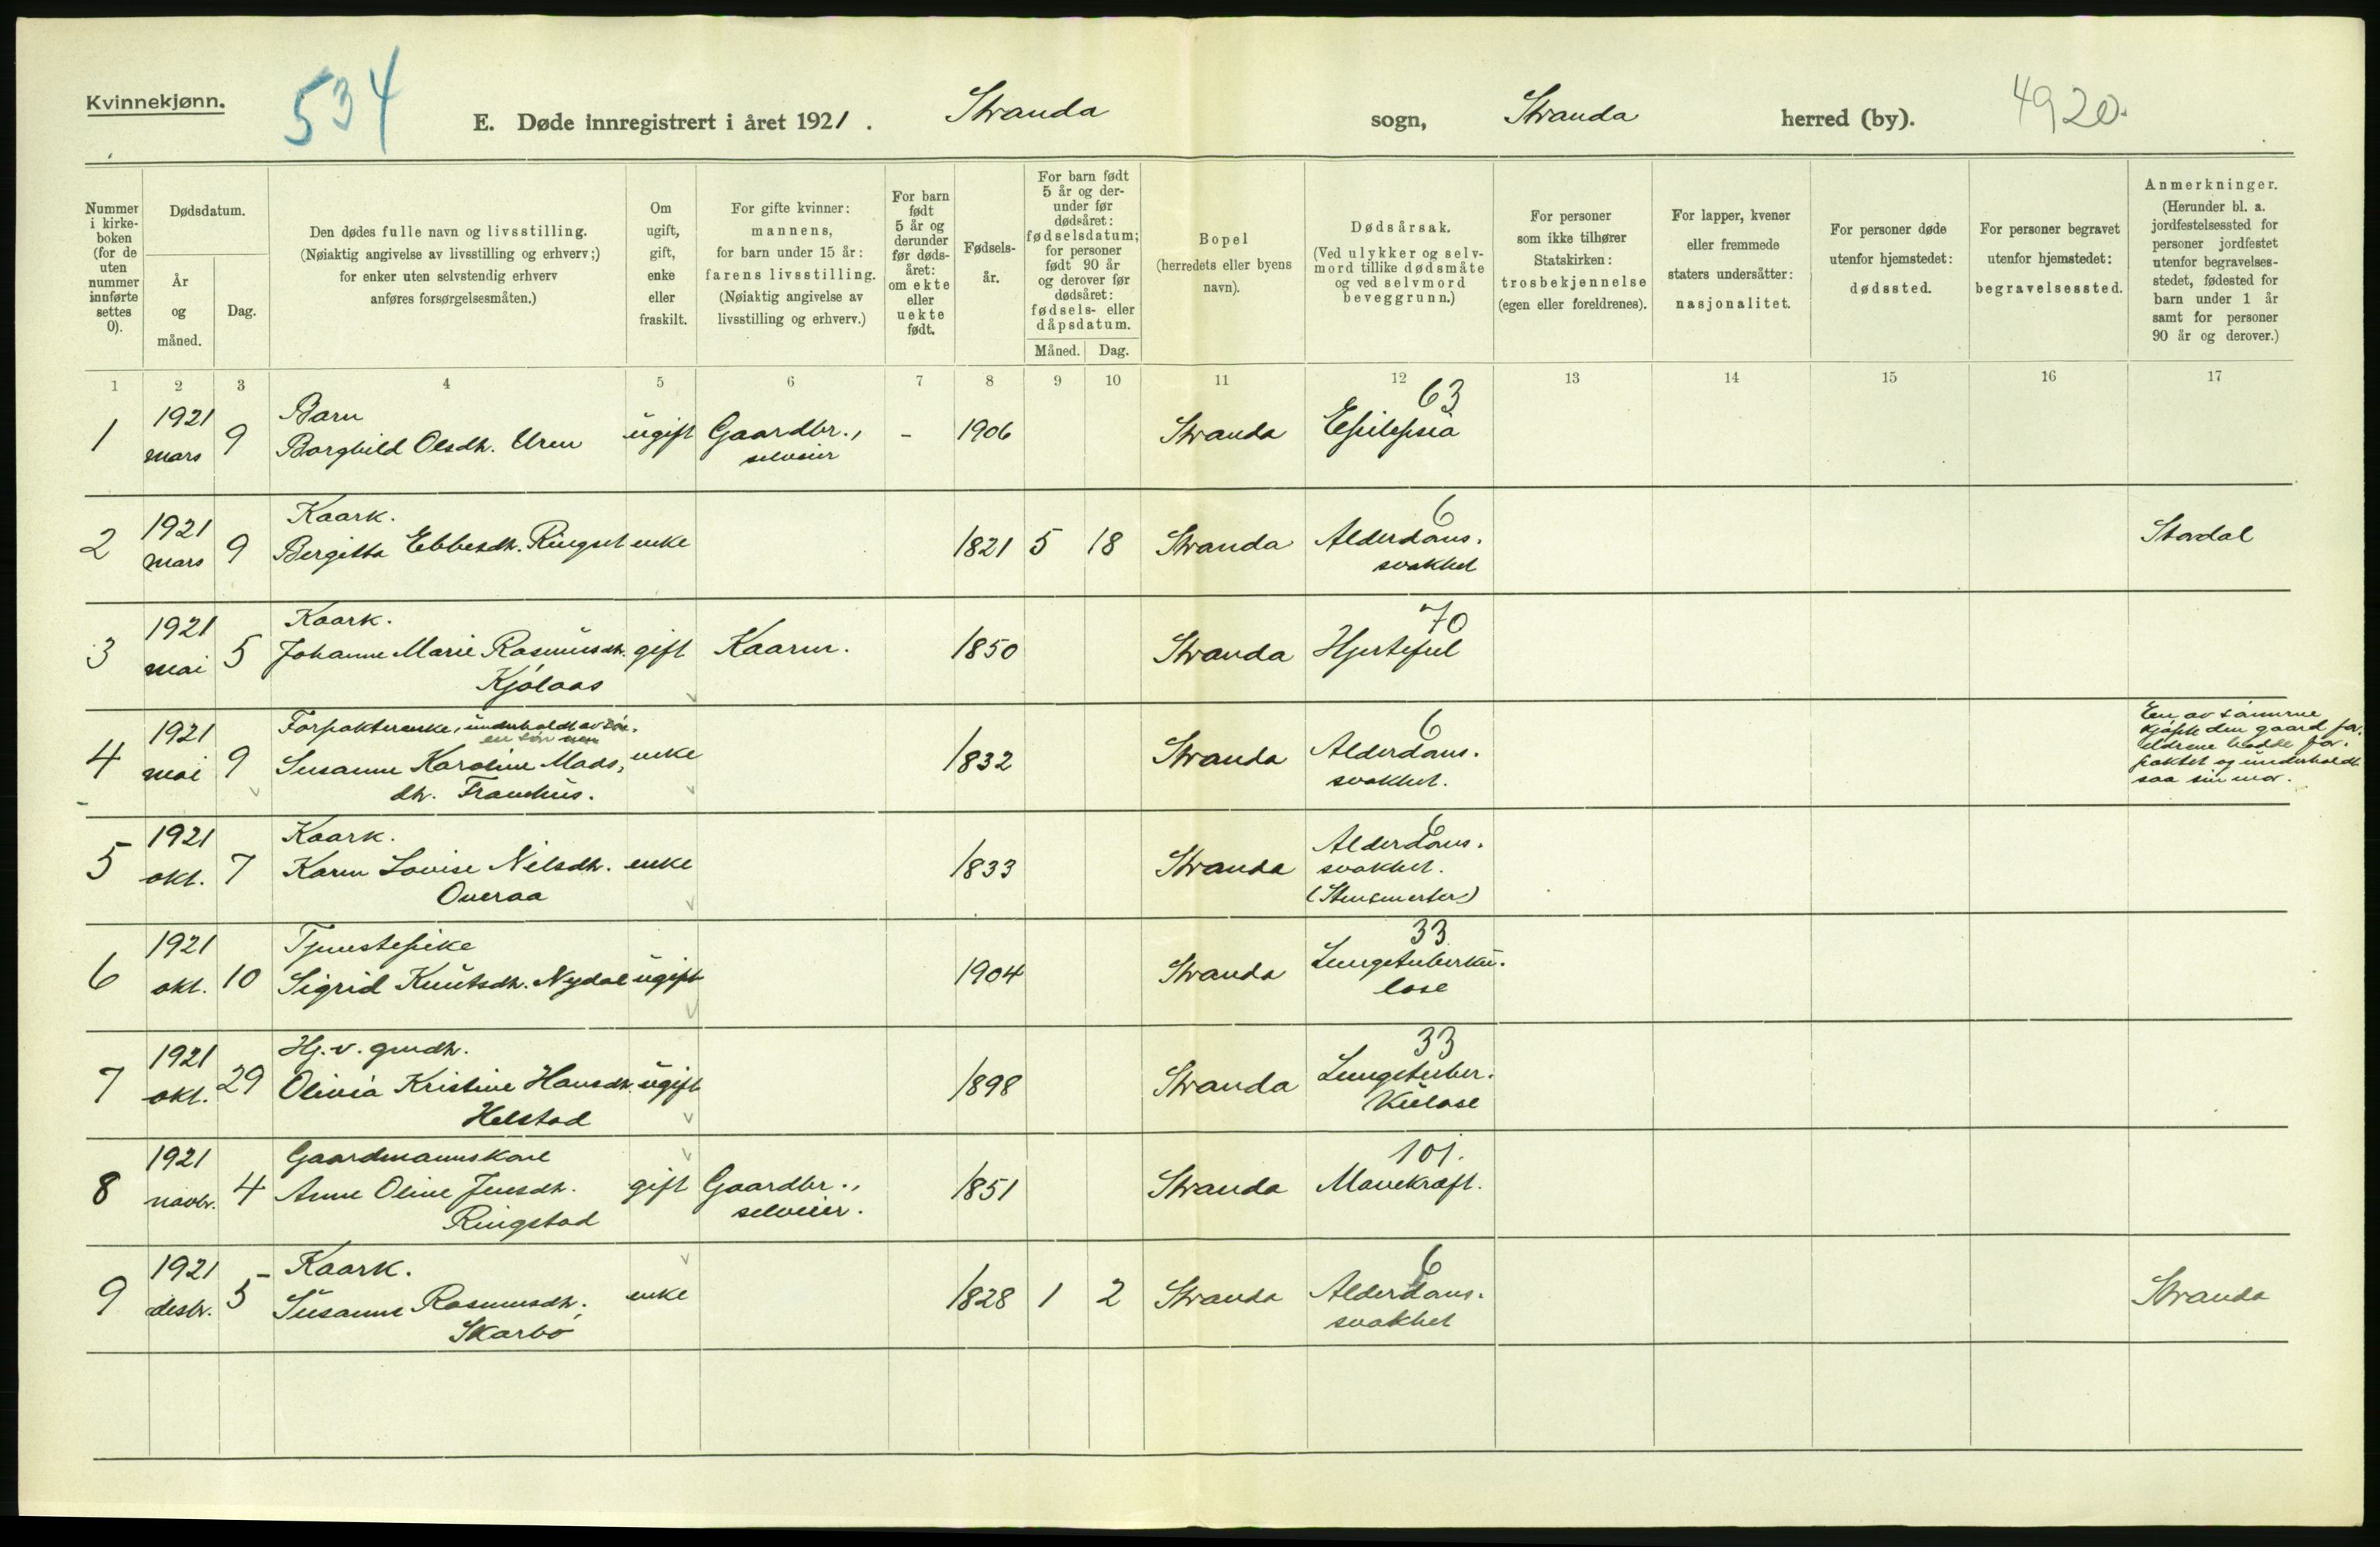 Kvinnekjønn.
534
E. Døde innregistrert i året 1921.
Stranda sogn, Stranda herred (by).
4920.
Nummer i kirke-boken (for de uten nummer innførte settes 0).
Dødsdatum.
År og måned.
Dag.
Den dødes fulle navn og livsstilling.
(Nøiaktig angivelse av livsstilling og erhverv;)
for enker uten selvstendig erhverv
anføres forsørgelsesmåten.)
Om ugift, gift, enke eller fraskilt.
For gifte kvinner:
mannens,
for barn under 15 år:
farens livsstilling.
(Nøiaktig angivelse av
livsstilling og erhverv.)
For barn født 5 år og derunder før døds-året: om ekte eller uekte født.
Fødsels-år.
For barn født 5 år og der-under før dødsåret: fødselsdatum; for personer født 90 år og derover før dødsåret: fødsels- eller dåpsdatum.
Måned. Dag.
Bopel
(herredets eller byens
navn).
Dødsårsak.
(Ved ulykker og selv-
mord tillike dødsmåte
og ved selvmord
beveggrunn.)
For personer
som ikke tilhører
Statskirken:
trosbekjennelse
(egen eller foreldrenes).
For lapper, kvener
eller fremmede
staters undersåtter:
nasjonalitet.
For personer døde
utenfor hjemstedet:
dødssted.
For personer begravet
utenfor hjemstedet:
begravelsessted.
Anmerkninger.
(Herunder bl. a.
jordfestelsessted for
personer jordfestet
utenfor begravelses-
stedet, fødested for
barn under 1 år
samt for personer
90 år og derover.)
1 2 3 4 5 6 7 8 9 10 11 12 13 14 15 16 17
1921 Barn 63
1 mars 9 Borghild Olsdh. Uren ugift Gaardbr., - 1906 Stranda Epilepsia
selveier
1921 Kaark. 6
2 mars 9 Bergitta Ebbesdh. Ringset enke 1821 5 18 Stranda Alderdoms. Stordal
svakhet
1921 Kaark. 70
3 mai 5 Johanne Marie Rasmusdh. gift Kaarm. 1850 Stranda Hjertefeil
Kjølaas
1921 Forpakterenke, underholdt av søn. 6
en søn
4 mai 9 Susanne Karoline Mads, enke 1832 Stranda Alderdoms.
dh. Franchus. svakhet.
En av sønnerne
kjøpte den gaard for.
eldrene hadde for.
paktet og underholdt
saa sin mor.
1921 Kaark. 6
5 okt. 7 Karen Lovise Nilsdh. enke 1833 Stranda Alderdoms.
Overaa svakhet.
(Stensmerter)
1921 Tjenestepike 33
6 okt. 10 Sigrid Knutsdh. Nydal ugift 1904 Stranda Lungetuberku.
lose
1921 Hj. v. gmdh. 33
7 okt. 29 Olivia Kristine Hansdh. ugift 1898 Stranda Lungetuber.
Helstad kulose
1921 Gaardmannskone 101.
8 novbr. 4 Anne Oline Jensdh. gift Gaardbr., 1851 Stranda Mavekræft.
Ringstad selveier.
1921 Kaark. 6
9 desbr. 5 Susanne Rasmusdh. enke 1828 1 2 Stranda Alderdoms. Stranda
Skarbø svakhet